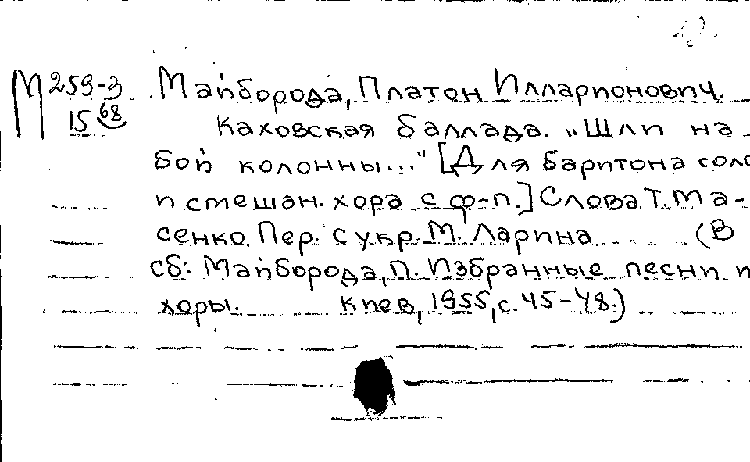 М 259-3 Майборода, Платон Илларионович.
15 68 Каховская баллада. "Шли на
бой колонны..." [Для баритона соло
и смешан. хора с ф-п.] Слова Т. Ма-
сенко. Пер. с укр. М. Ларина (В
сб: Майборода, П. Избранные песни и
хоры. Киев, 1955, с. 45-48.)